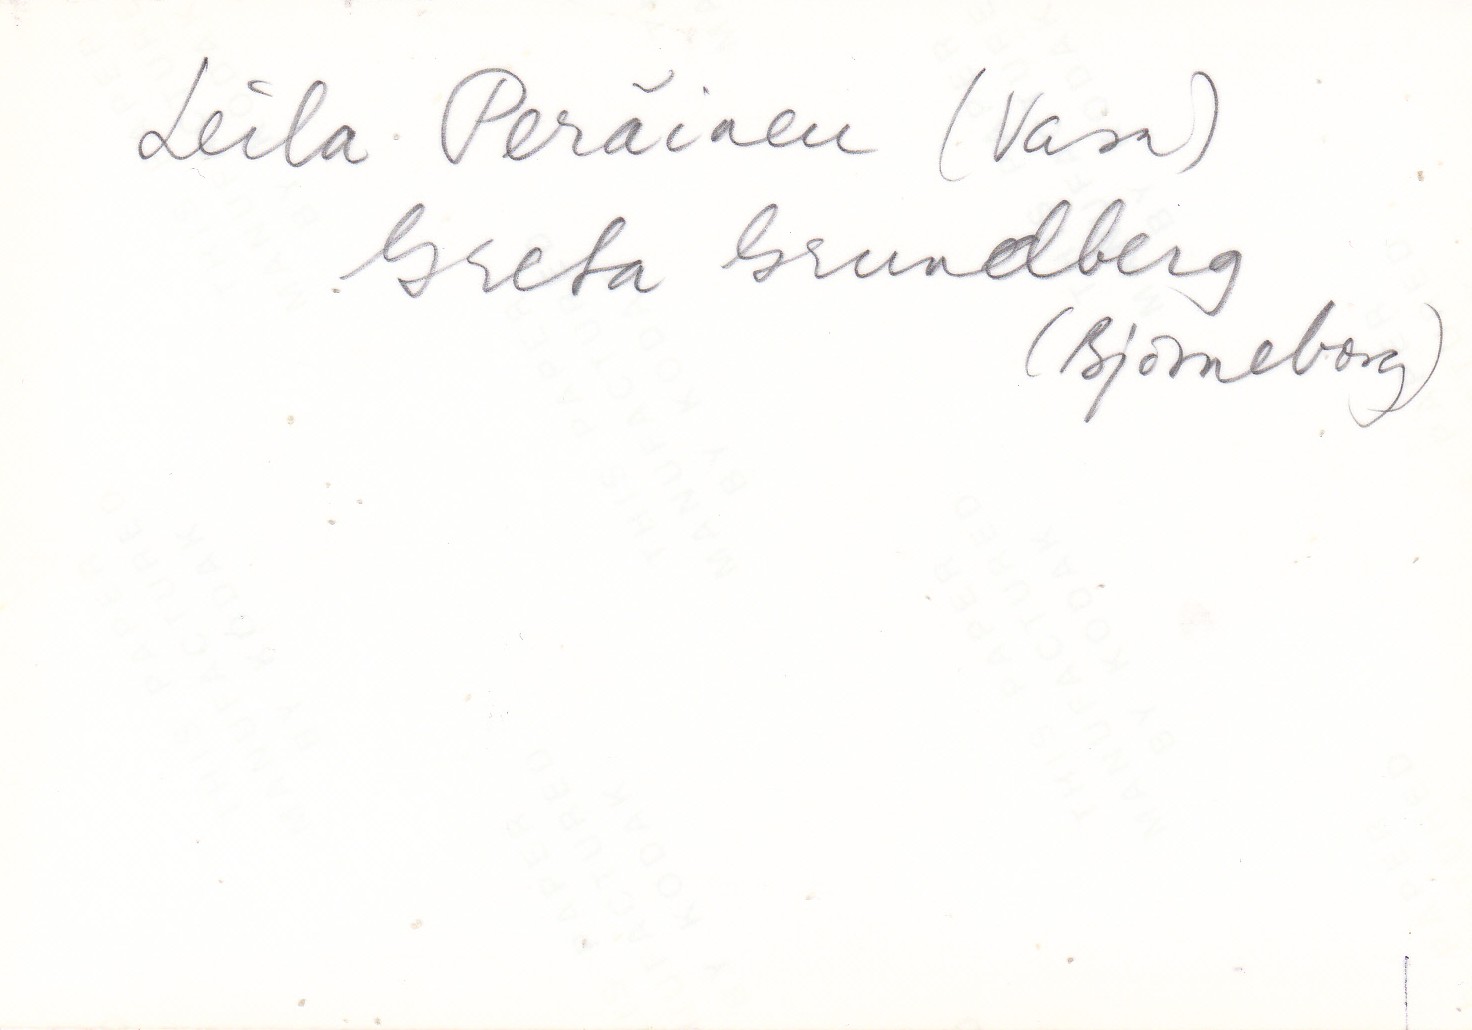 Leila Peräinen (Vasa)
Greta Grundberg
(Björneborg)
THIS PAPER
MANUFACTURED
BY KODAK